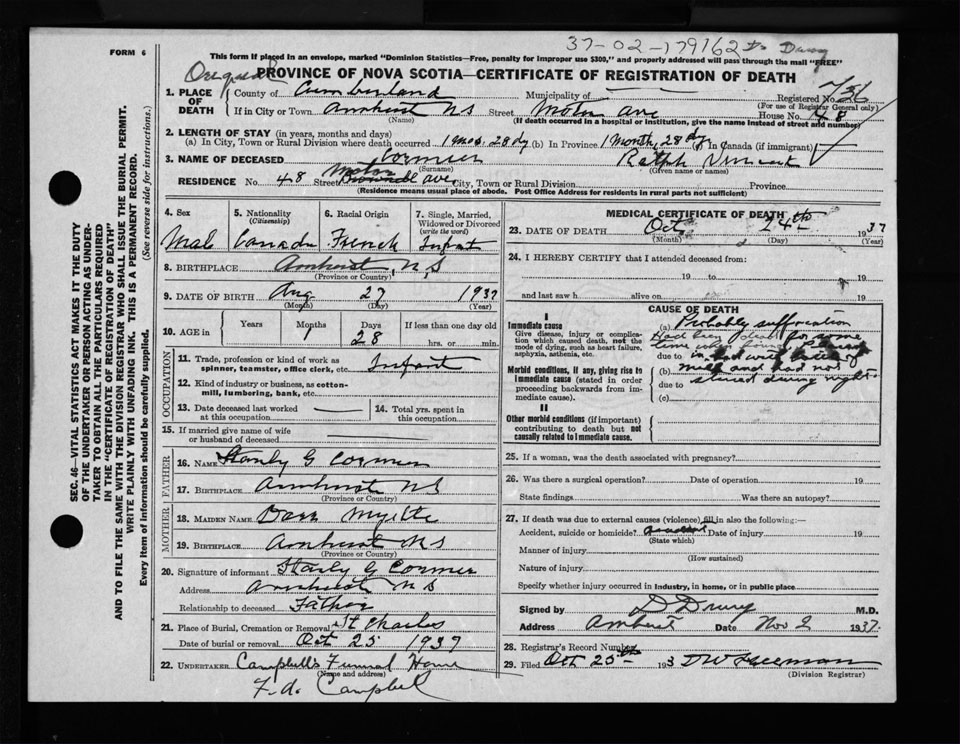 FORM 6
37-02-179162
This form if placed in an envelope, marked "Dominion Statistics—Free, penalty for improper use $300," and properly addressed will pass through the mail "FREE"
PROVINCE OF NOVA SCOTIA—CERTIFICATE OF REGISTRATION OF DEATH
1. PLACE OF DEATH
County of Cumberland Municipality of Registered No. 736
(For use of Registrar General only)
If in City or Town Amherst NS Street Motor Ave House No. 48
(Name) (If death occurred in a hospital or institution, give the name instead of street and number)
2. LENGTH OF STAY (in years, months and days)
(a) In City, Town or Rural Division where death occurred 1 mos. 28 dy (b) In Province 1 Month, 28 dy (c) In Canada (if immigrant)
3. NAME OF DECEASED Cormier Ralph Vincent
(Surname) (Given name or names)
RESIDENCE No. 48 Street Motor Ave City, Town or Rural Division Province
(Residence means usual place of abode. Post Office Address for residents in rural parts not sufficient)
4. Sex Mal
5. Nationality (Citizenship) Canada
6. Racial Origin French
7. Single, Married, Widowed or Divorced (write the word) Infant
8. BIRTHPLACE Amherst, NS
(Province or Country)
9. DATE OF BIRTH Aug 27 1937
(Month) (Day) (Year)
10. AGE in Years Months Days If less than one day old
1 28 hrs. or min.
OCCUPATION
11. Trade, profession or kind of work as spinner, teamster, office clerk, etc. Infant
12. Kind of industry or business, as cotton-mill, lumbering, bank, etc.
13. Date deceased last worked at this occupation
14. Total yrs. spent in this occupation
15. If married give name of wife or husband of deceased
FATHER
16. NAME Stanly G Cormier
17. BIRTHPLACE Amherst NS
(Province or Country)
MOTHER
18. MAIDEN NAME
19. BIRTHPLACE Amherst NS
(Province or Country)
20. Signature of informant Stanly G Cormier
Address Amherst NS
Relationship to deceased Father
21. Place of Burial, Cremation or Removal St Charles
Date of burial or removal Oct 25 1937
22. UNDERTAKER Campbell's Funeral Home
(Name and address)
F. A. Campbell
MEDICAL CERTIFICATE OF DEATH
23. DATE OF DEATH Oct 24th 1937
(Month) (Day) (Year)
24. I HEREBY CERTIFY that I attended deceased from:
19 to 19
and last saw h alive on 19
CAUSE OF DEATH
I
Immediate cause
Give disease, injury or complication which caused death, not the mode of dying, such as heart failure, asphyxia, asthenia, etc.
Morbid conditions, if any, giving rise to immediate cause (stated in order proceeding backwards from immediate cause).
II
Other morbid conditions (if important) contributing to death but not causally related to immediate cause.
(a) Probably suffocation
Had been dead for some
time when found
due to in bed with bottle of
(b) milk and had not
due to stirred during night.
(c)
25. If a woman, was the death associated with pregnancy?
26. Was there a surgical operation? Date of operation 19
State findings Was there an autopsy?
27. If death was due to external causes (violence) fill in also the following:—
Accident, suicide or homicide? accident Date of injury 19
(State which)
Manner of injury
(How sustained)
Nature of injury
Specify whether injury occurred in industry, in home, or in public place
Signed by D Drury M.D.
Address Amherst Date Nov 2 1937.
28. Registrar's Record Number
29. Filed Oct 25th 193 DW Freeman
(Division Registrar)
SEC. 46—VITAL STATISTICS ACT MAKES IT THE DUTY
OF THE UNDERTAKER OR PERSON ACTING AS UNDER-
TAKER TO OBTAIN ALL THE PARTICULARS REQUIRED
IN THE "CERTIFICATE OF REGISTRATION OF DEATH"
AND TO FILE THE SAME WITH THE DIVISION REGISTRAR WHO SHALL ISSUE THE BURIAL PERMIT.
WRITE PLAINLY WITH UNFADING INK. THIS IS A PERMANENT RECORD.
Every item of information should be carefully supplied. (See reverse side for instructions.)